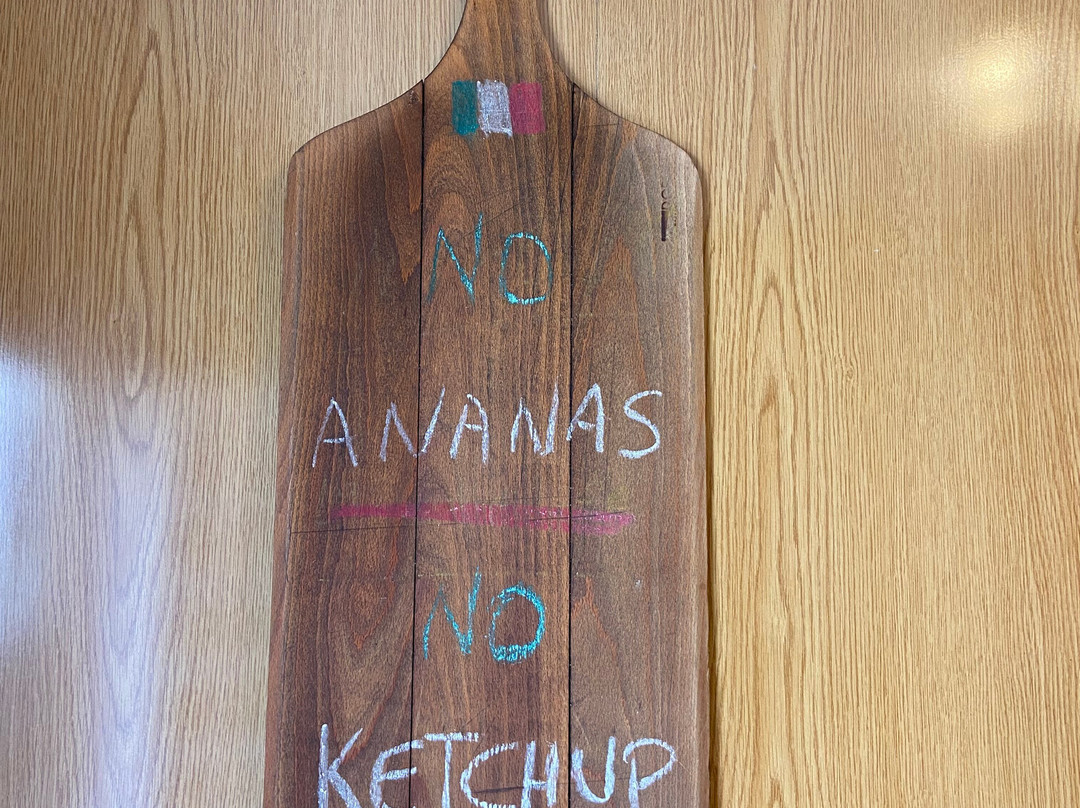 NO
ANANAS
NO
KETCHUP